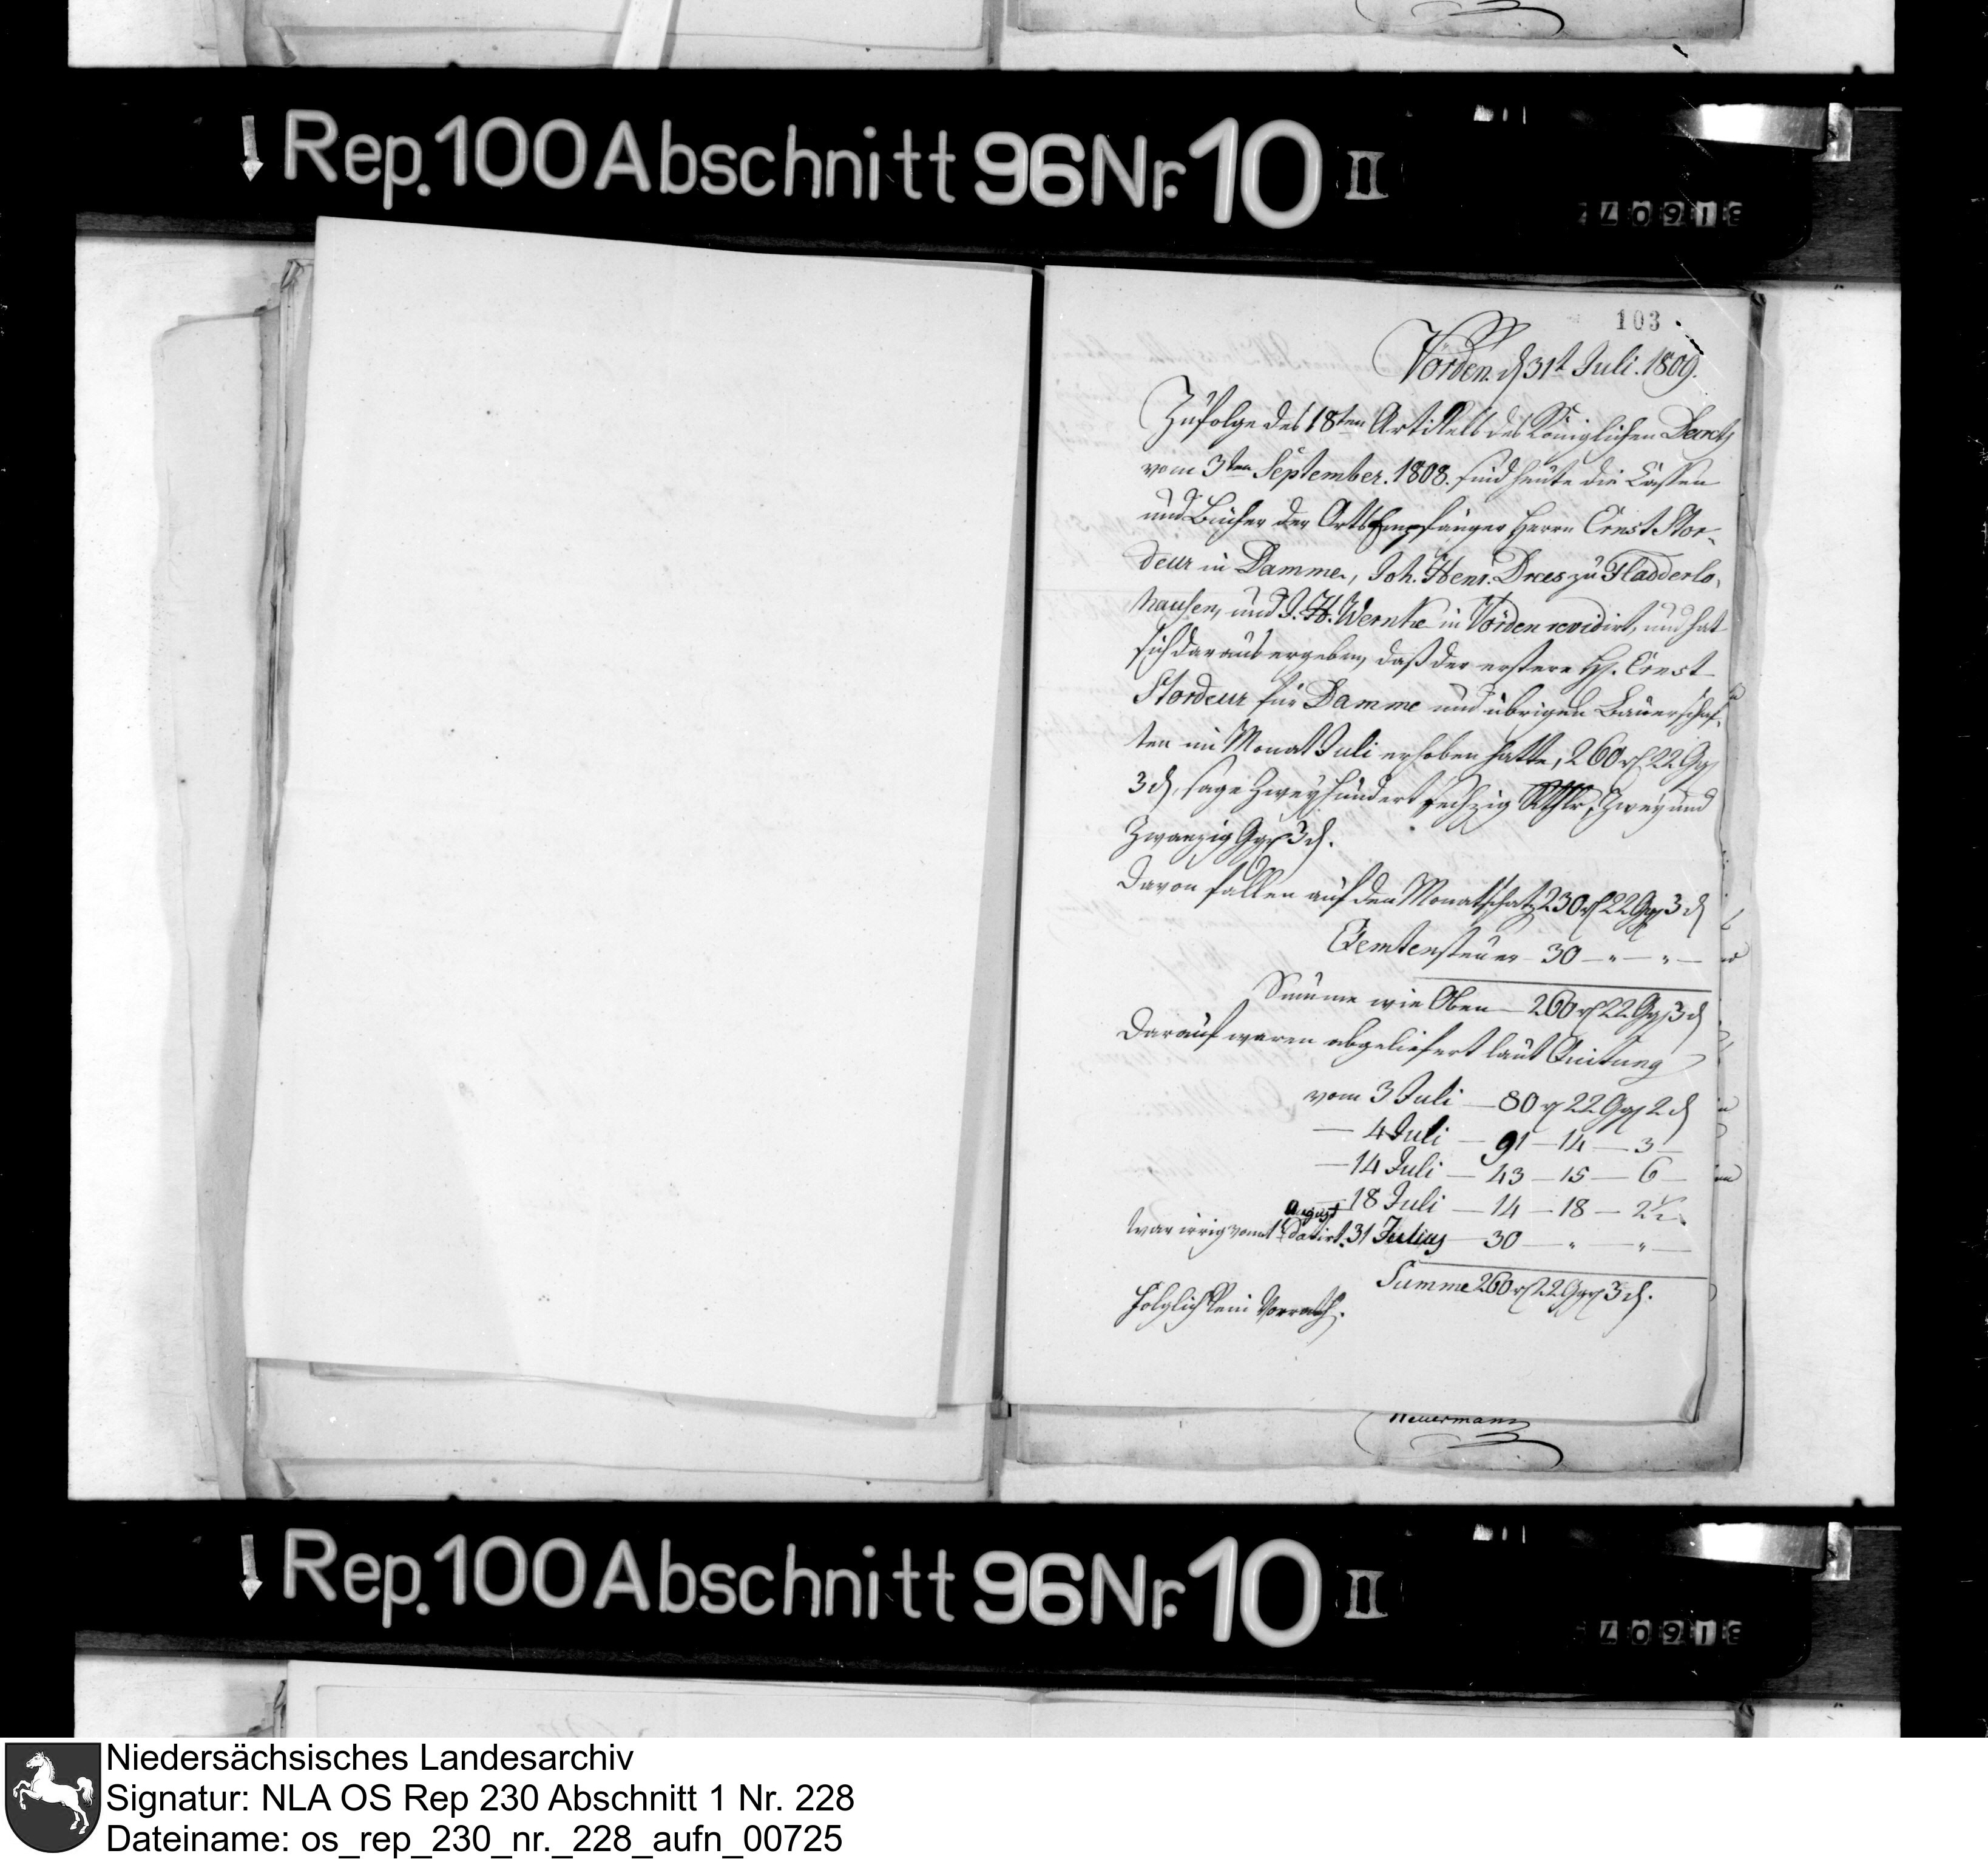 Rep. 100 Abschnitt 96 Nr. 10 II
103
Vörden. d 31t Juli. 1809.
Zufolge des 18ten Artikels des Königlichen Decrets
vom 3ten September. 1808. sind heute die Cassen
und Bücher der Ortsempfänger Herrn Ernst Stor-
deur in Damme, Joh. Henr. Drees zu Fladderlo-
hausen, und J. H. Wernke in Vörden revidirt, und hat
sich daraus ergeben, daß der erstere H. Ernst
Stordeur für Damme und übrigen Bauerschaf-
ten im Monat Juli erhoben hatte, 260 rt 22 Ggr
3 d, sage Zweyhundert sechzig Rthlr, Zwey und
Zwanzig Ggr 3 d.
Davon fallen auf den Monatschatz 230 rt 22 Ggr 3 d
Exemtensteuer - 30 — " — " —
Summe wie Oben — 260 rt 22 Ggr 3 d
Darauf waren abgeliefert laut Quitung
vom 3 Juli — 80 rt 22 Ggr 2 d
— 4 Juli — 91 — 14 — 3 —
— 14 Juli — 43 — 15 — 6 —
— 18 Juli — 14 — 18 — 2
august
war irrig vom 1t datirt. 31 Julius — 30 — " — " —
Summe 260 rt 22 Ggr 3 d.
folglich kein Vorrath.
Heuermann
Rep. 100 Abschnitt 96 Nr. 10 II
Niedersächsisches Landesarchiv
Signatur: NLA OS Rep 230 Abschnitt 1 Nr. 228
Dateiname: os_rep_230_nr._228_aufn_00725